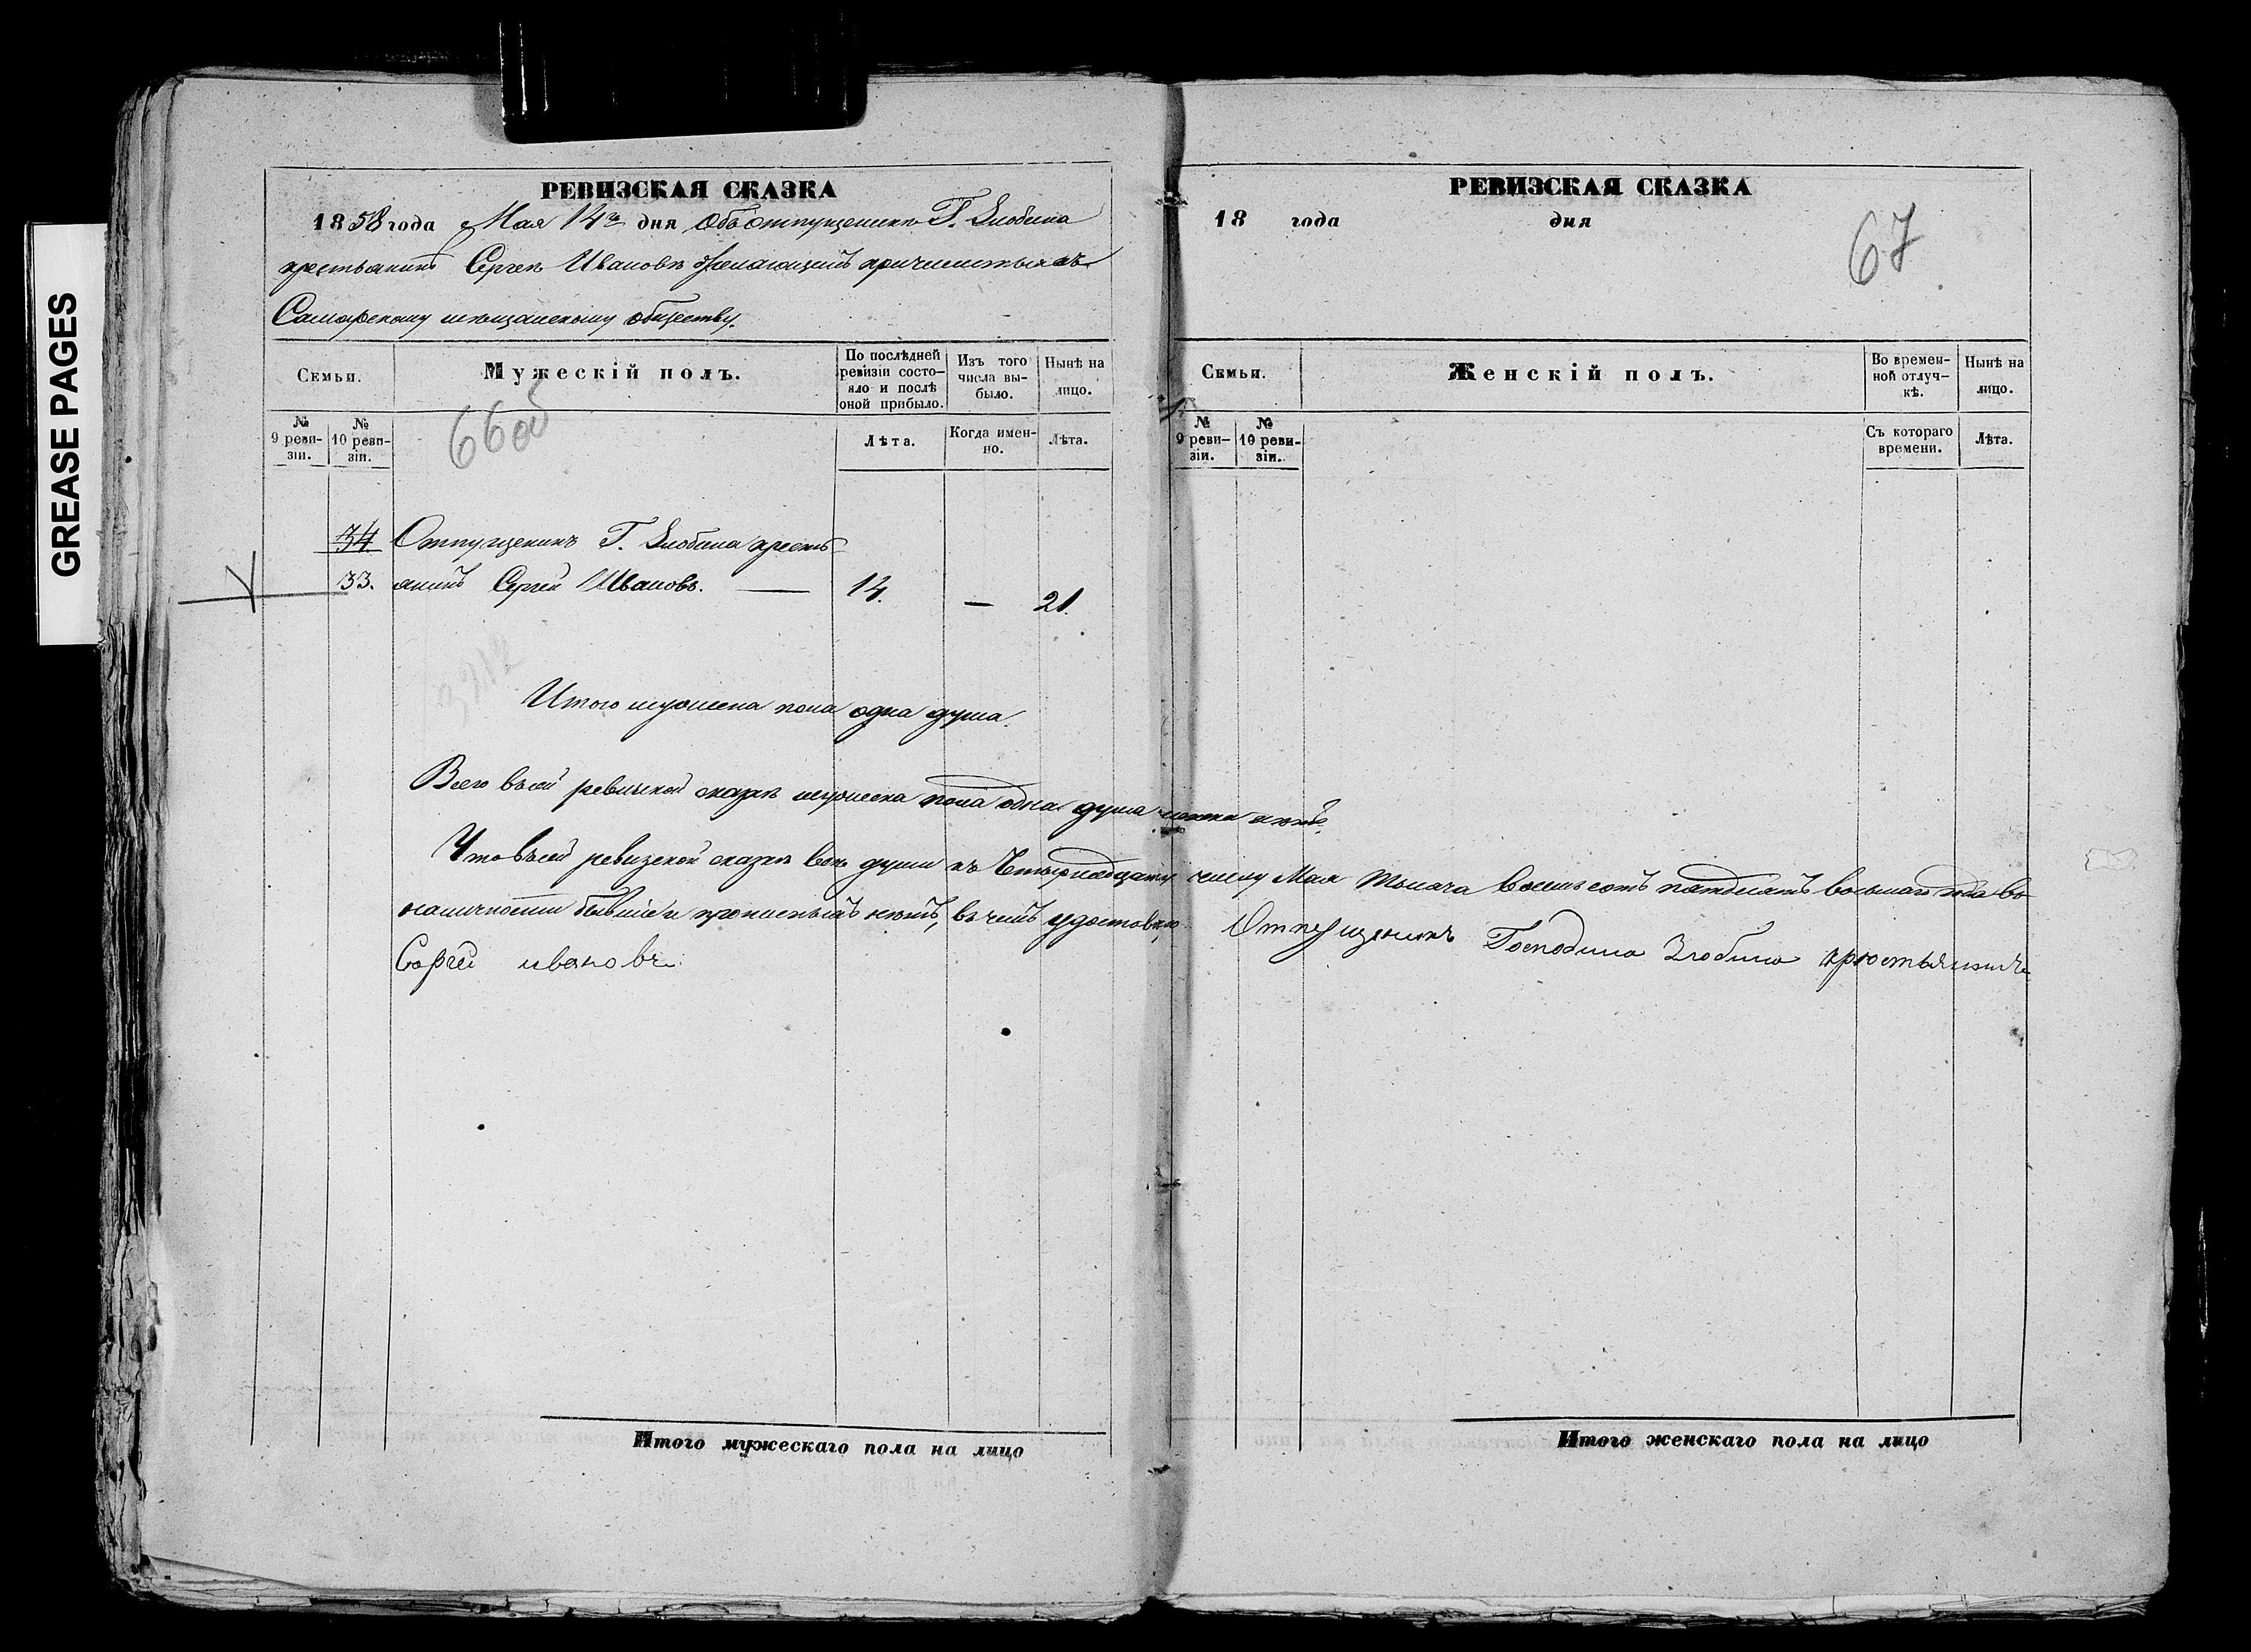 GREASE PAGES
РЕВИЗСКАЯ СКАЗКА
1858 года Мая 14го дня Объ отпущенике Г. Злобина
крестьянинѣ Сергеѣ Ивановѣ желающимъ причислиться къ
Самарскому мѣщанскому обществу.
Семьи.
Мужескій полъ.
По послѣдней ревизіи состо-яло и послѣ оной прибыло.
Изъ того числа вы-было.
Нынѣ на лицо.
№ 9 реви-зіи.
№ 10 реви-зіи.
66об
Лѣта.
Когда имен-но.
Лѣта.
34 Отпущеникъ Г. Злобина кресть
33. янинъ Сергей Ивановъ. — 14. — 21.
3212
Итого мужеска пола одна душа.
Всего въ сей ревизской сказкѣ мужеска пола одна душа
Что въ сей ревизской сказкѣ всѣ души къ Четырнадцатому числу Мая Тысяча восемьсотъ пятдесятъ восьмаго года въ
наличности бывшие и прописныхъ нѣтъ, въ чемъ удостовѣряю Отпущеникъ Господина Злобина крестьянинъ
Сергей ивановъ
Итого мужескаго пола на лицо
РЕВИЗСКАЯ СКАЗКА
18 года дня
67
Семьи.
Женскій полъ.
Во времен-ной отлуч-кѣ.
Нынѣ на лицо.
№ 9 реви-зіи.
№ 10 реви-зіи.
Съ котораго времени.
Лѣта.
Итого женскаго пола на лицо